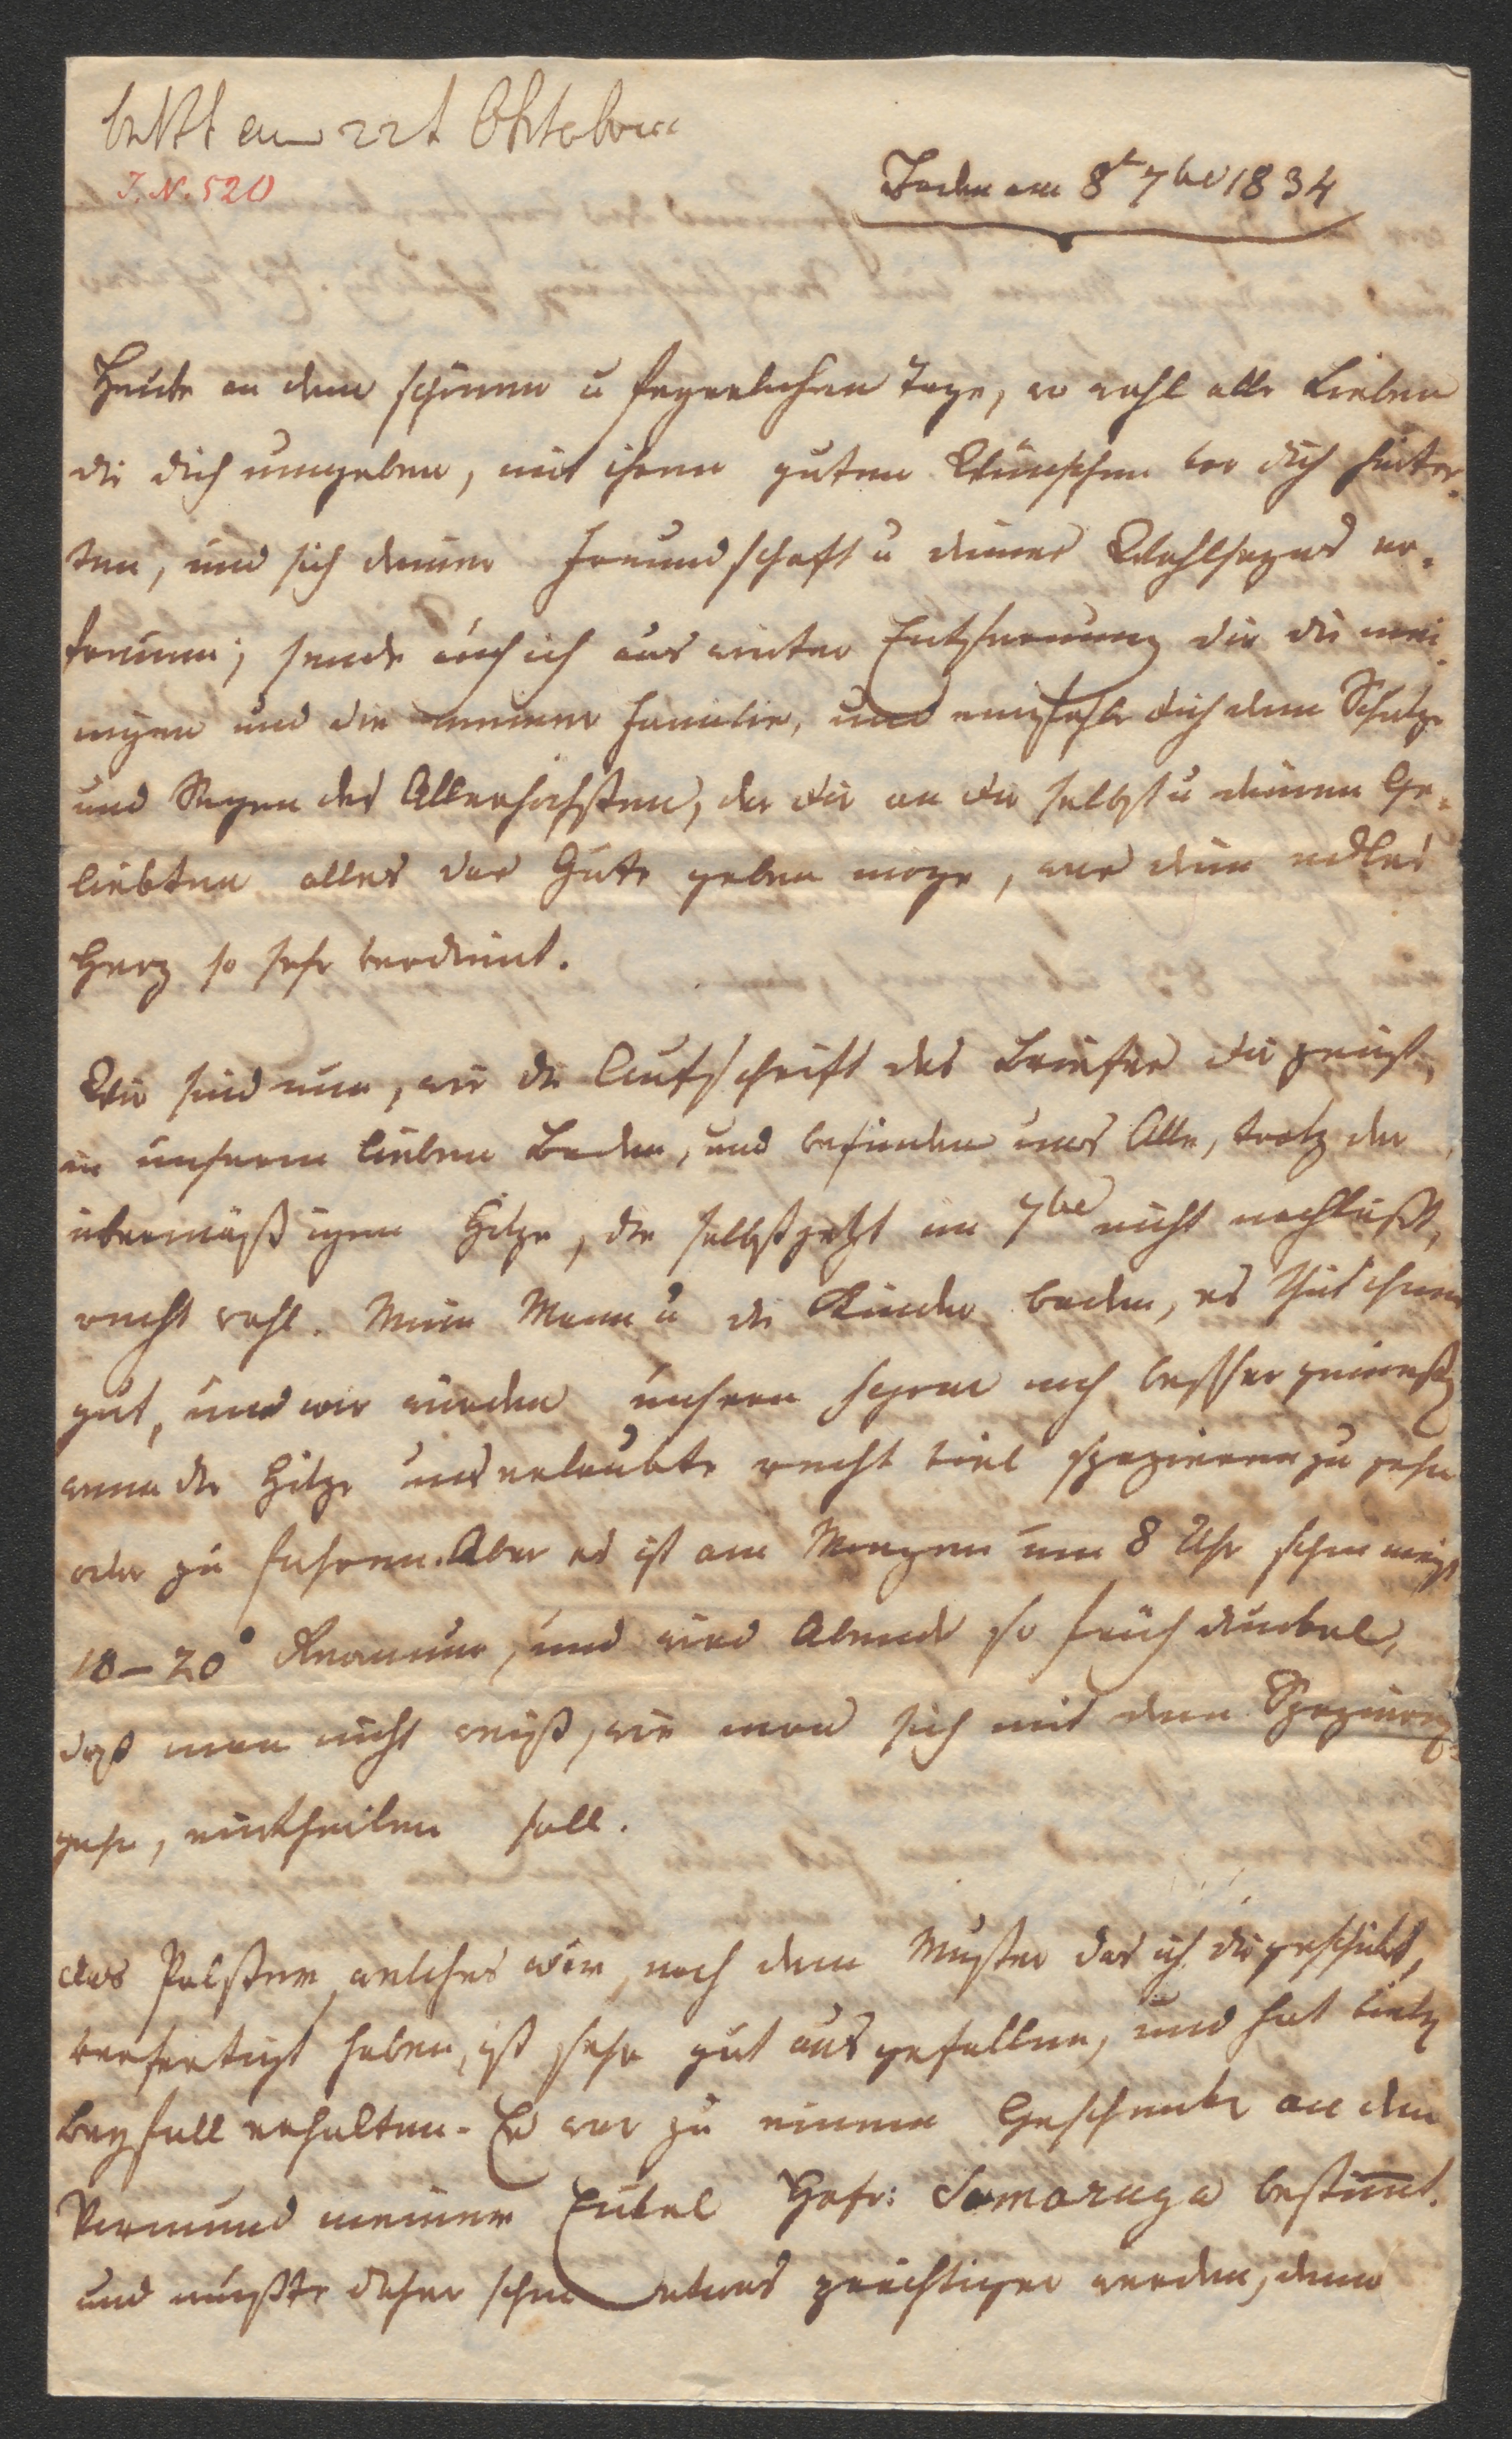 am 22t Oktober
J. N. 520
Baden am 8t 7be 1834
Heute an dem schönen u feyerlichen Tage, wo wohl alle Lieben
die dich umgeben, mit ihren guten Wünschen vor dich hintre„
ten, und sich deiner Freundschaft u deines Wohlseyns er„
freuen; sende auch ich aus weiter Entfernung dir die mei„
nigen und die meiner Familie, und empfehle dich dem Schutze
und Segen des Allerhöchsten, der dir an dir selbst u deinen Ge„
liebten alles das Gute geben möge, was dein edles
Herz so sehr verdient.
Wir sind nun, wie die Aufschrift des Briefes dir zeigt,
in unserem lieben Baden, und befinden uns Alle, trotz der
übermäßigen Hitze, die selbst jetzt im 7be nicht nachläßt,
recht wohl. Mein Mann u die Kinder baden, es thut ihnen
gut, und wir würden unsern noch besser
wenn die Hitze uns erlaubte recht viel spazieren zu gehn
oder zu fahren. Aber es ist am Morgen um 8 Uhr schon meist
18–20° Reaumur, und wird Abends so früh dunkel,
daß man nicht weiß, wie man sich mit dem Spazieren„
gehn, eintheilen soll.
das Polster, welches wir, nach dem Muster das ich dir geschickt,
verfertigt haben, ist sehr gut ausgefallen, und hat viel
Beyfall erhalten. Es war zu einem Geschenke an den
Vormund meiner Enkel Hofr: Somaruga bestimmt.
und mußte daher schon etwas prächtiger werden, denn